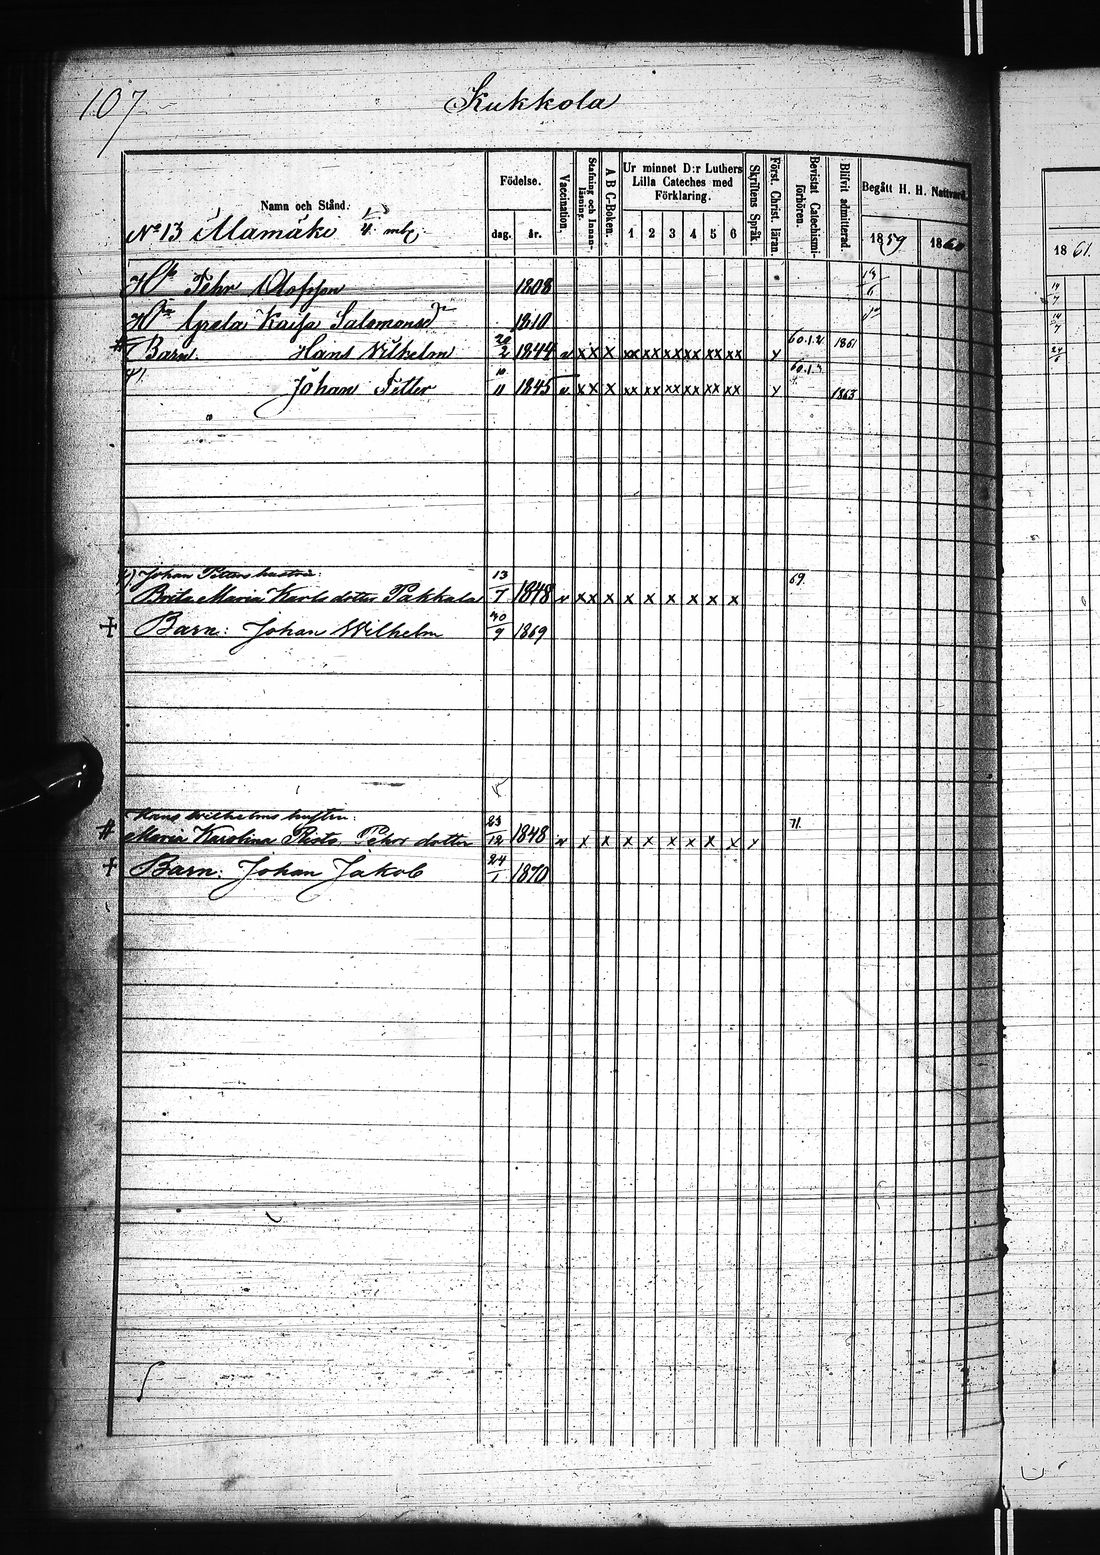 107
Kukkola
Namn och Stånd.
Födelse.
dag. år.
Vaccination.
Stafning och Innanläsning.
A B C-Boken.
Ur minnet D:r Luthers Lilla Cateches med Förklaring.
1 2 3 4 5 6
Skriftens Språk.
Först. Christ. läran.
Bevistat Catechismiförhören.
Blifvit admitterad.
Begått H. H. Nattvard.
1859 1860
1861.
No 13 Alamäki
Pehr Olofsson 1808
Greta Kaisa Salomonsdr 1810
Barn. Hans Wilhelm 20/2 1844 v x x x xx xx xx xx xx xx y 60.1.2 1861
Johan Petter 10/11 1845 v x x x xx xx xx xx xx xx y 1863
Johan Petters hustru:
Brita Maria Karlsdotter Pakkala 13/7 1848 v xx x x x x x x x 69.
+ Barn: Johan Wilhelm 30/9 1869
Hans Wilhelms hustru:
# Maria Karolina Pehrsdotter 23/12 1848 v x x x x x x x x y 71.
+ Barn: Johan Jakob 24/1 1870